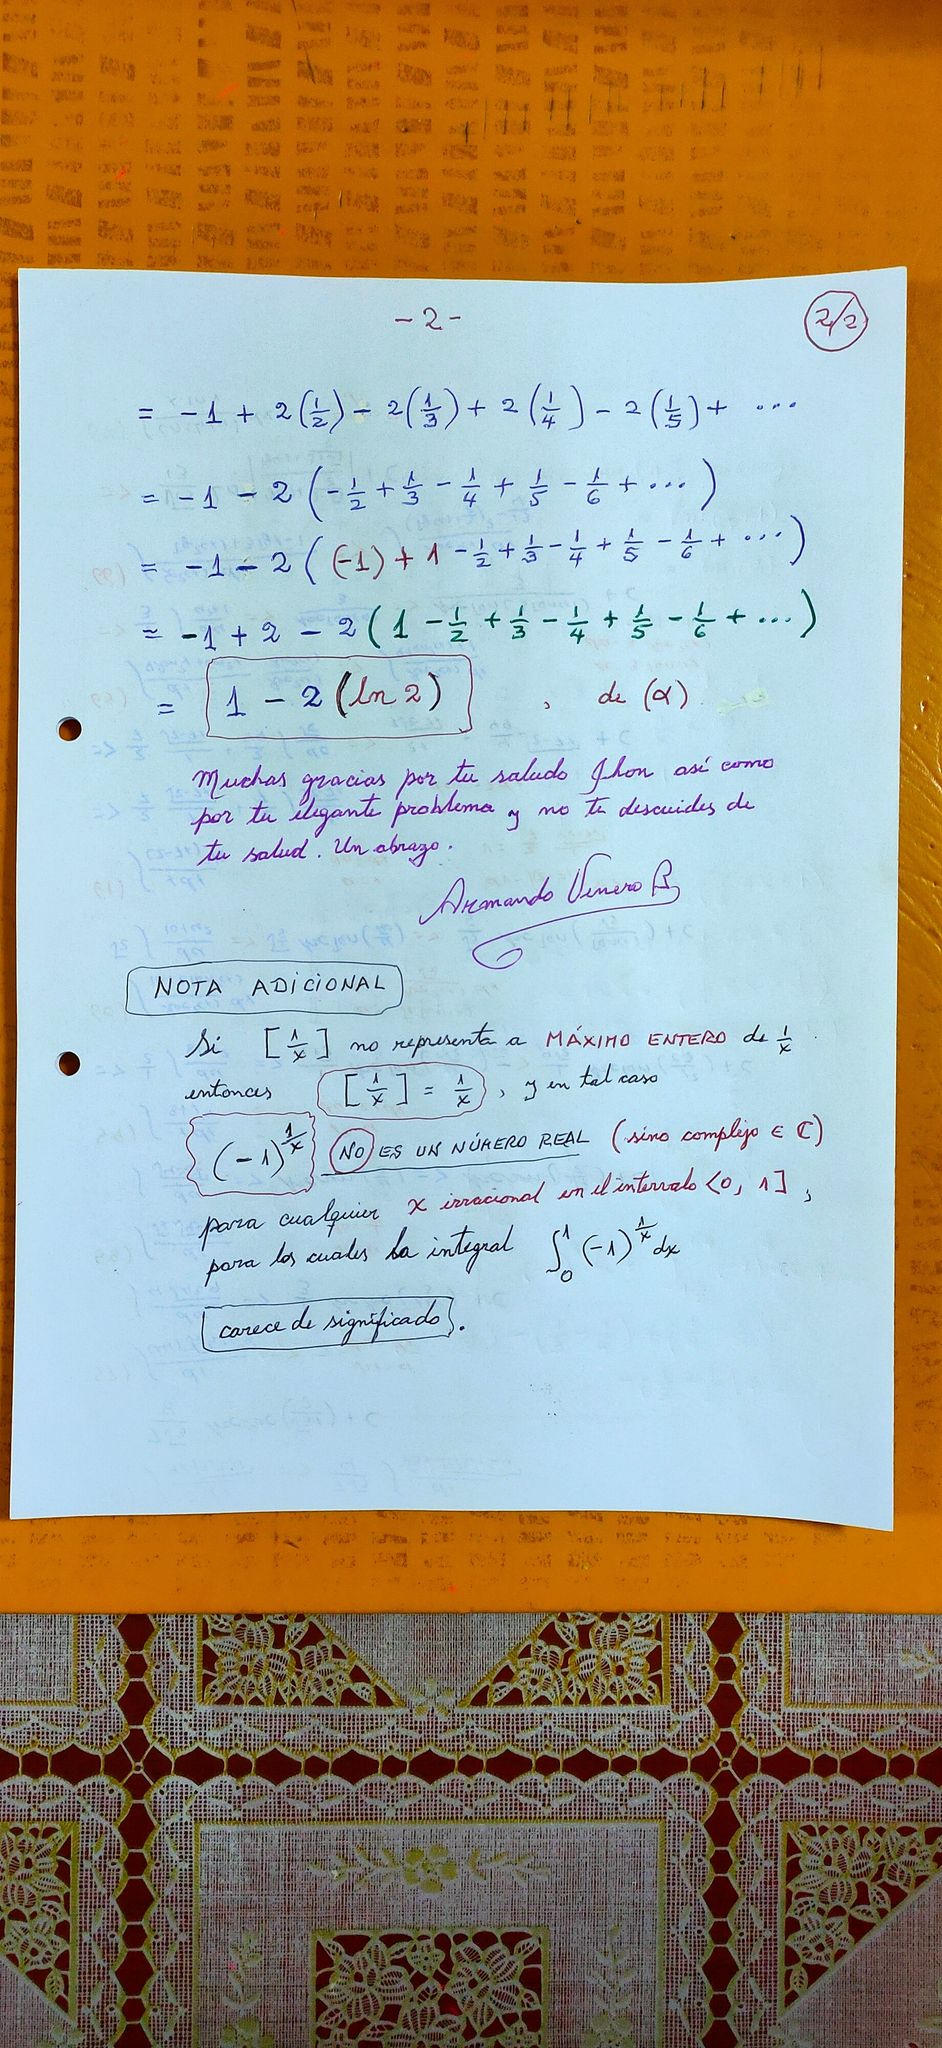 -2-
2/2
= -1 + 2(1/2) - 2(1/3) + 2(1/4) - 2(1/5) + ...
= -1 - 2(-1/2 + 1/3 - 1/4 + 1/5 - 1/6 + ...)
= -1 - 2((-1) + 1 - 1/2 + 1/3 - 1/4 + 1/5 - 1/6 + ...)
= -1 + 2 - 2(1 - 1/2 + 1/3 - 1/4 + 1/5 - 1/6 + ...)
= 1 - 2(ln 2) , de (α)
Muchas gracias por tu saludo Jhon así como
por tu elegante problema y no te descuides de
tu salud. Un abrazo.
Armando Venero B
NOTA ADICIONAL
Si [1/x] no representa a MÁXIMO ENTERO de 1/x
entonces [1/x] = 1/x , y en tal caso
(-1)^(1/x) NO ES UN NÚMERO REAL (sino complejo ∈ ℂ)
para cualquier x irracional en el intervalo <0, 1],
para los cuales la integral ∫₀¹ (-1)^(1/x) dx
carece de significado.